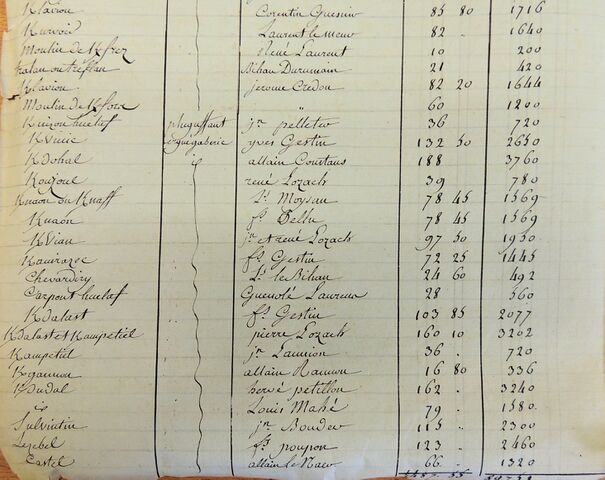 Klaviou Corentin Guesnno 85 80 1716
Kervoio Laurent le meur 82 . 1640
Moulin de Kfrez René Laurent 10 200
tralan ou tréflan Bihan Durumain 21 420
Klaviou jerome Credou 82 20 1644
Moulin de Kfora " 60 1200
Kurion huelaf pluguffant jn pelleter 36 720
Kvinic Erguegaberic yves Gestin 132 50 2650
Kdohal id allain Coustans 188 3760
Koujout rené Lozach 39 780
Knaon ou Knaff Ls Moysan 78 45 1569
Knaon fs Dellu 78 45 1569
Kvian jn et rené Lozach 97 50 1950
Kauirozec fs Gestin 72 25 1445
Chevardiry Ls le Bihan 24 60 492
Carpont huelaf Guenolé Laurent 28 560
Kdalast fs Gestin 103 85 2077
Kdalast et Kampetiel pierre Lozach 160 10 3202
Kampetiel jn Launion 36 . 720
Kgannou allain Rannou 16 80 336
Kdudal hervé petillon 162 . 3240
id Louis Mahé 79 . 1580
Sulvintin jn Boudeo 115 . 2300
Lezebel fs poupon 123 . 2460
Castel allain le Naeo 66 . 1320